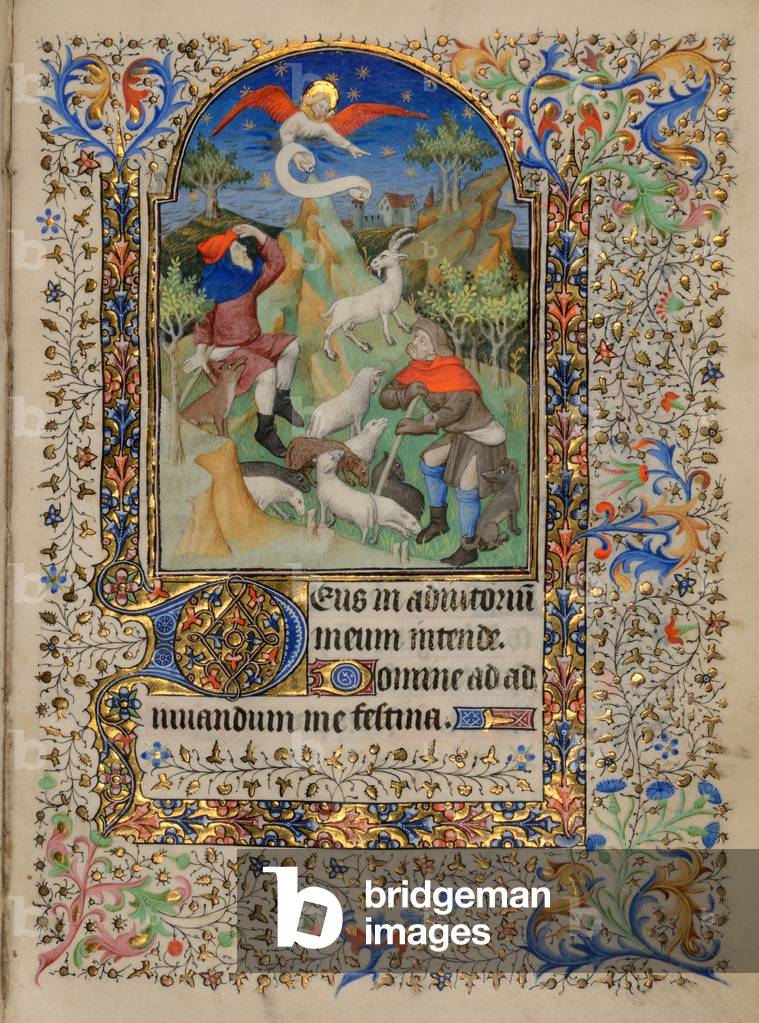 Deus in adiutoriū
meum intende.
Domine ad ad
iuuandum me festina.
b bridgeman
images